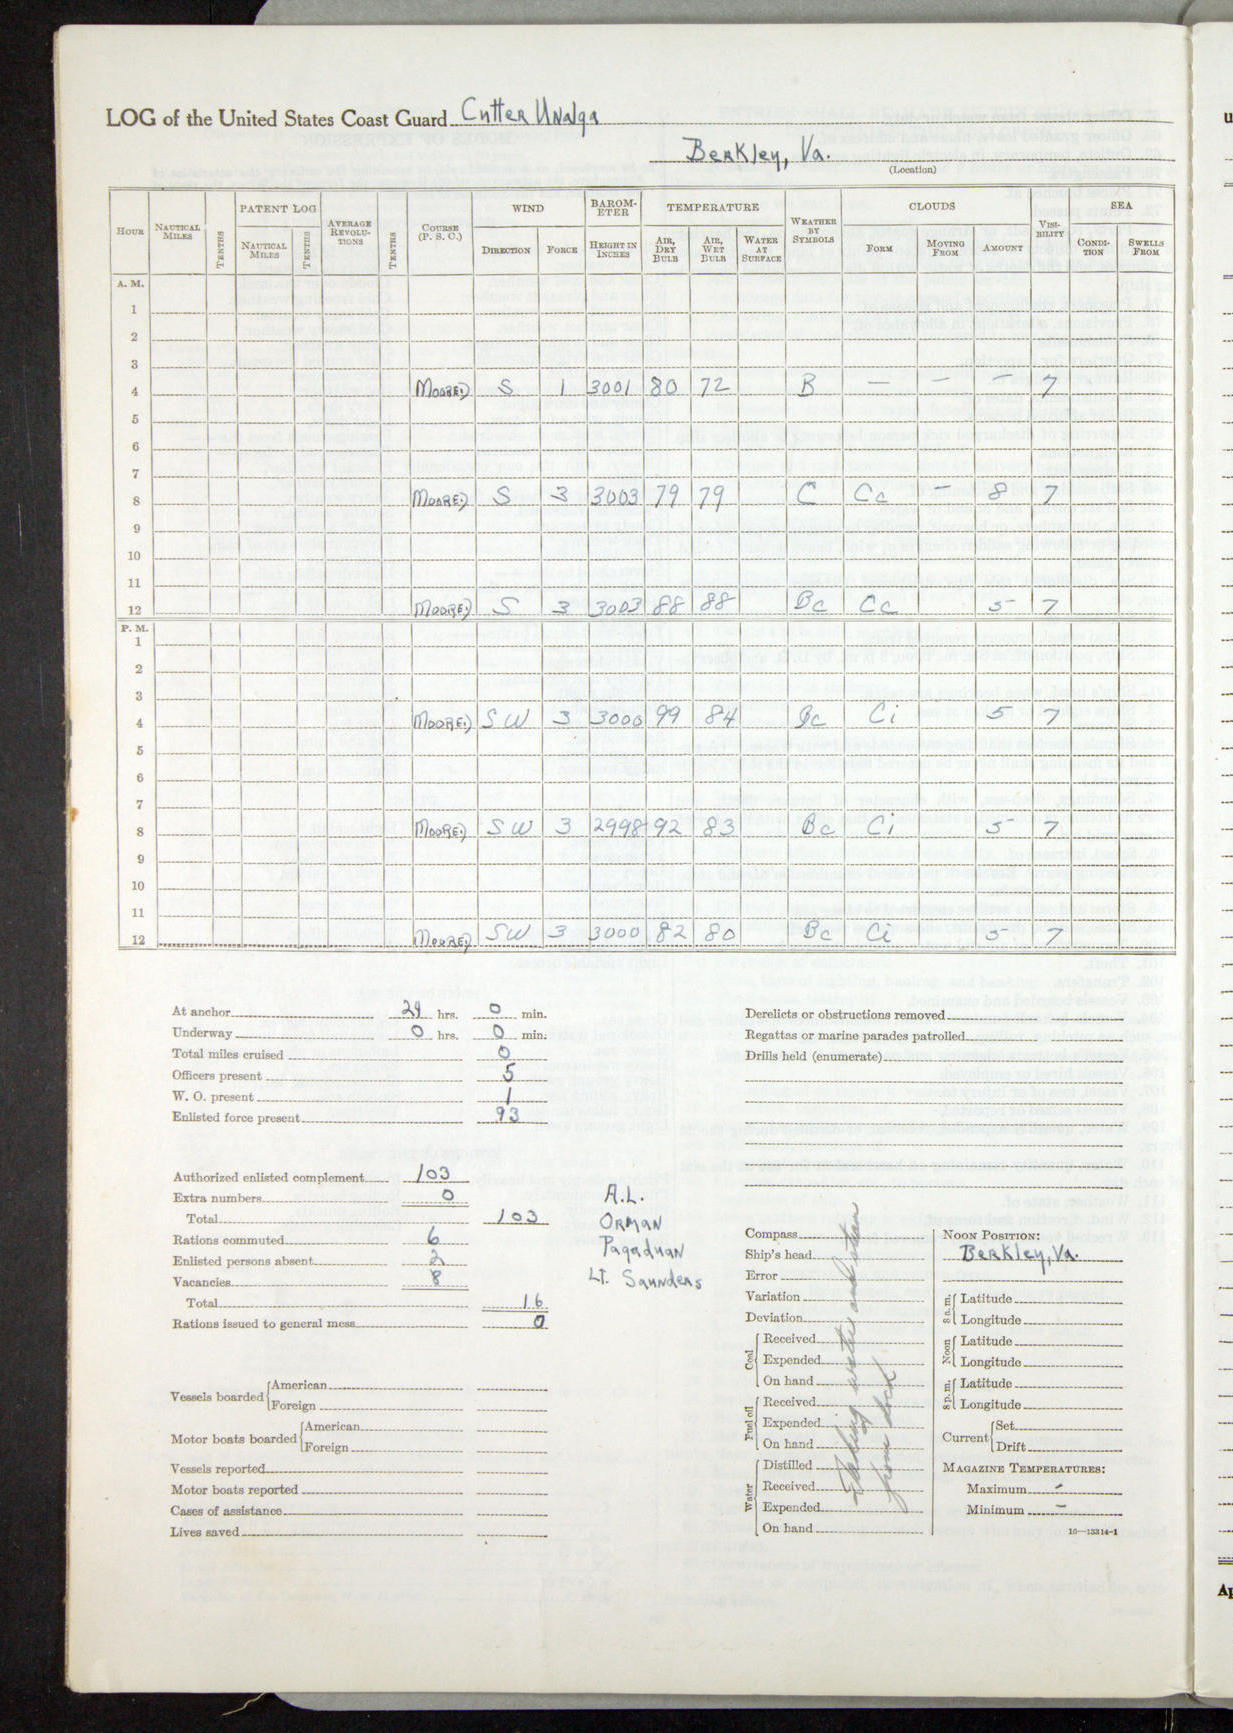 LOG of the United States Coast Guard Cutter Unalga
Berkley, Va.
(Location)
HOUR NAUTICAL MILES TENTHS PATENT LOG NAUTICAL MILES TENTHS AVERAGE REVOLU-TIONS TENTHS COURSE (P. S. C.) WIND DIRECTION FORCE BAROM-ETER HEIGHT IN INCHES TEMPERATURE AIR, DRY BULB AIR, WET BULB WATER AT SURFACE WEATHER BY SYMBOLS CLOUDS FORM MOVING FROM AMOUNT VISI-BILITY SEA CONDI-TION SWELLS FROM
A. M.
1
2
3
4 Moored S 1 3001 80 72 B — — — 7
5
6
7
8 Moored S 3 3003 79 79 C Cc — 8 7
9
10
11
12 Moored S 3 3003 88 88 Bc Cc 5 7
P. M.
1
2
3
4 Moored SW 3 3000 99 84 Bc Ci 5 7
5
6
7
8 Moored SW 3 2998 92 83 Bc Ci 5 7
9
10
11
12 Moored SW 3 3000 82 80 Bc Ci 5 7
At anchor 24 hrs. 0 min.
Underway 0 hrs. 0 min.
Total miles cruised 0
Officers present 5
W. O. present 1
Enlisted force present 93
Authorized enlisted complement 103
Extra numbers 0
Total 103
Rations commuted 6
Enlisted persons absent 2
Vacancies 8
Total 16
Rations issued to general mess 0
A.L.
Orman
Pagaduan
Lt. Saunders
Vessels boarded American
Foreign
Motor boats boarded American
Foreign
Vessels reported
Motor boats reported
Cases of assistance
Lives saved
Derelicts or obstructions removed
Regattas or marine parades patrolled
Drills held (enumerate)
Compass
Ship's head
Error
Variation
Deviation
Coal Received
Expended
On hand
Fuel oil Received
Expended
On hand
Water Distilled
Received
Expended
On hand
Taking water and steam
from dock
NOON POSITION:
Berkley, Va.
8 a. m. Latitude
Longitude
Noon Latitude
Longitude
8 p. m. Latitude
Longitude
Current Set
Drift
MAGAZINE TEMPERATURES:
Maximum -
Minimum -
16—13314-1